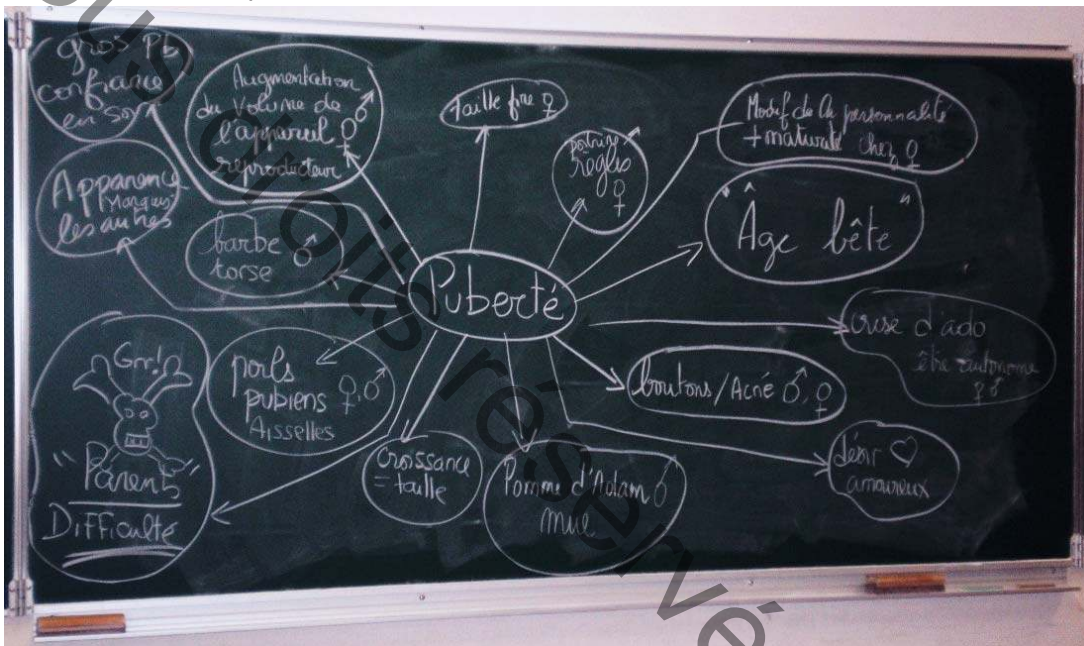 gros Pb
confiance
en soi
Augmentation
du volume de
l'appareil ♀ ♂
reproducteur
taille fine ♀
poitrine
règles
♀
Modif de la personnalité
+ maturité chez ♀
Apparence
Marquer
les autres
barbe ♂
torse
Puberté
"Âge bête"
crise d'ado
être autonome
♀ ♂
Grr!
"Parents"
Difficulté
poils
pubiens ♀, ♂
Aisselles
boutons/Acné ♂, ♀
croissance
= taille
Pomme d'Adam ♂
mue
désir ♡
amoureux
Tous droits réservé